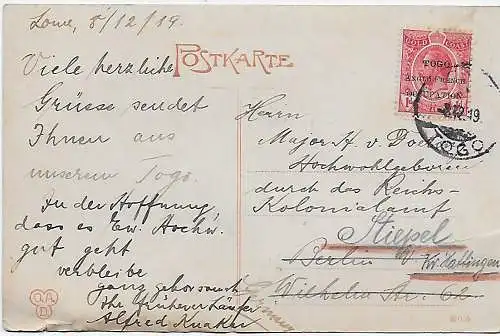 Lome, 8/12/19.
POSTKARTE
Viele herzliche
Grüsse sendet
Ihnen aus
unserem Togo.
In der Hoffnung,
dass es Ew. Hochw.
gut geht
verbleibe
ganz gehorsamst
Ihr
Alfred
GOLD COAST
TOGO
ANGLO-FRENCH
OCCUPATION
OGO
Herrn
Major H. v. Doe
Hochwohlgeboren
durch das Reichs-
Kolonialamt
Stiepel
Berlin bei
Kr. Hattingen
Wilhelm Str. 62